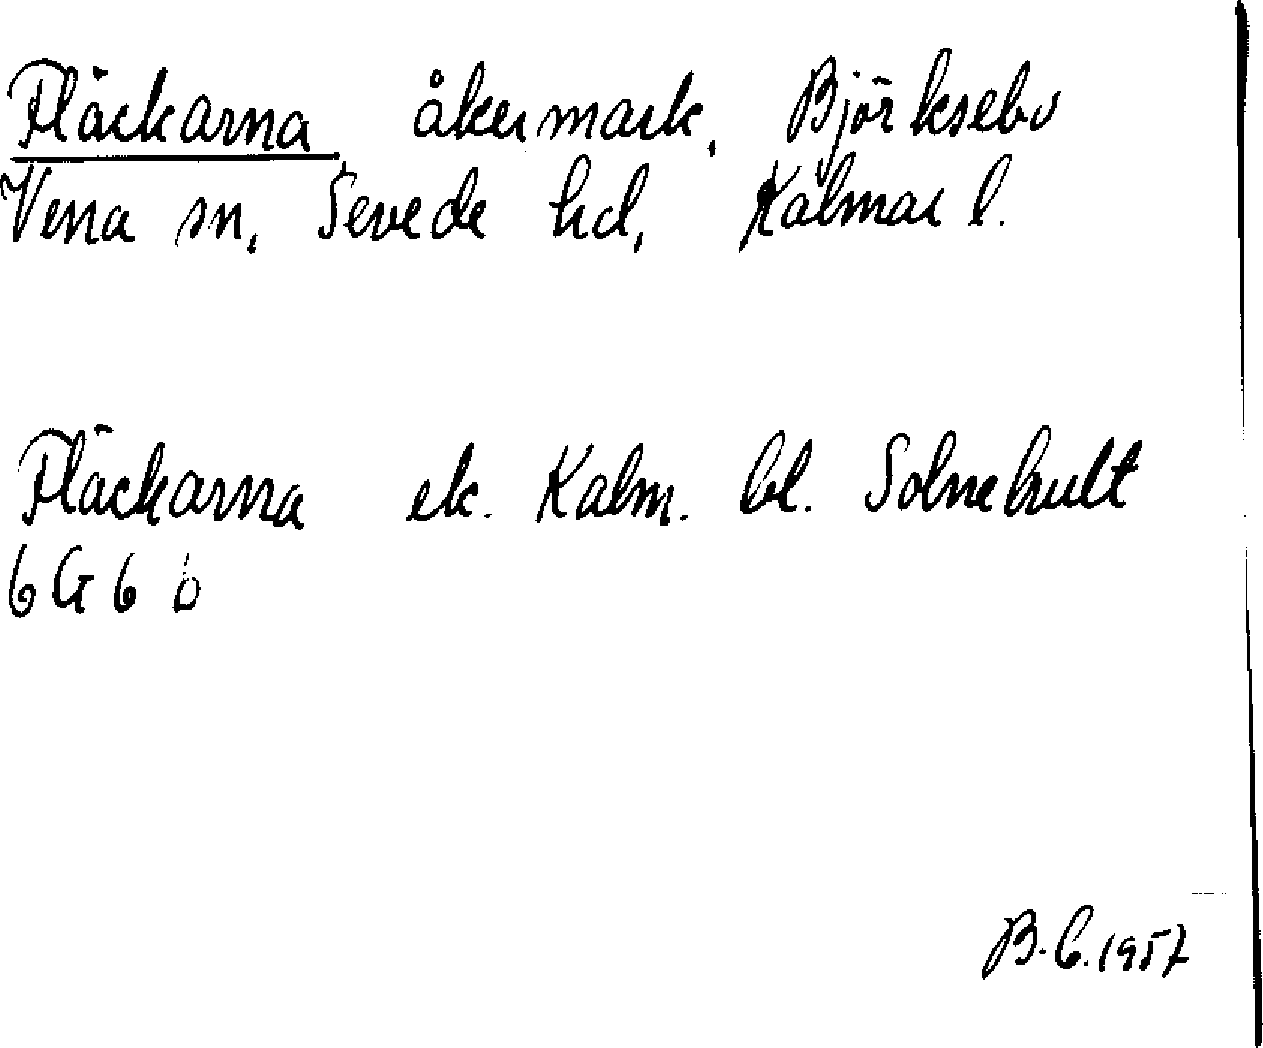 Fläckarna åkermark, Björksebo
Vena sn, Sevede hd, Kalmar l.
Fläckarna ek. Kalm. bl. Solnehult
6G 6 b
B.C. 1957